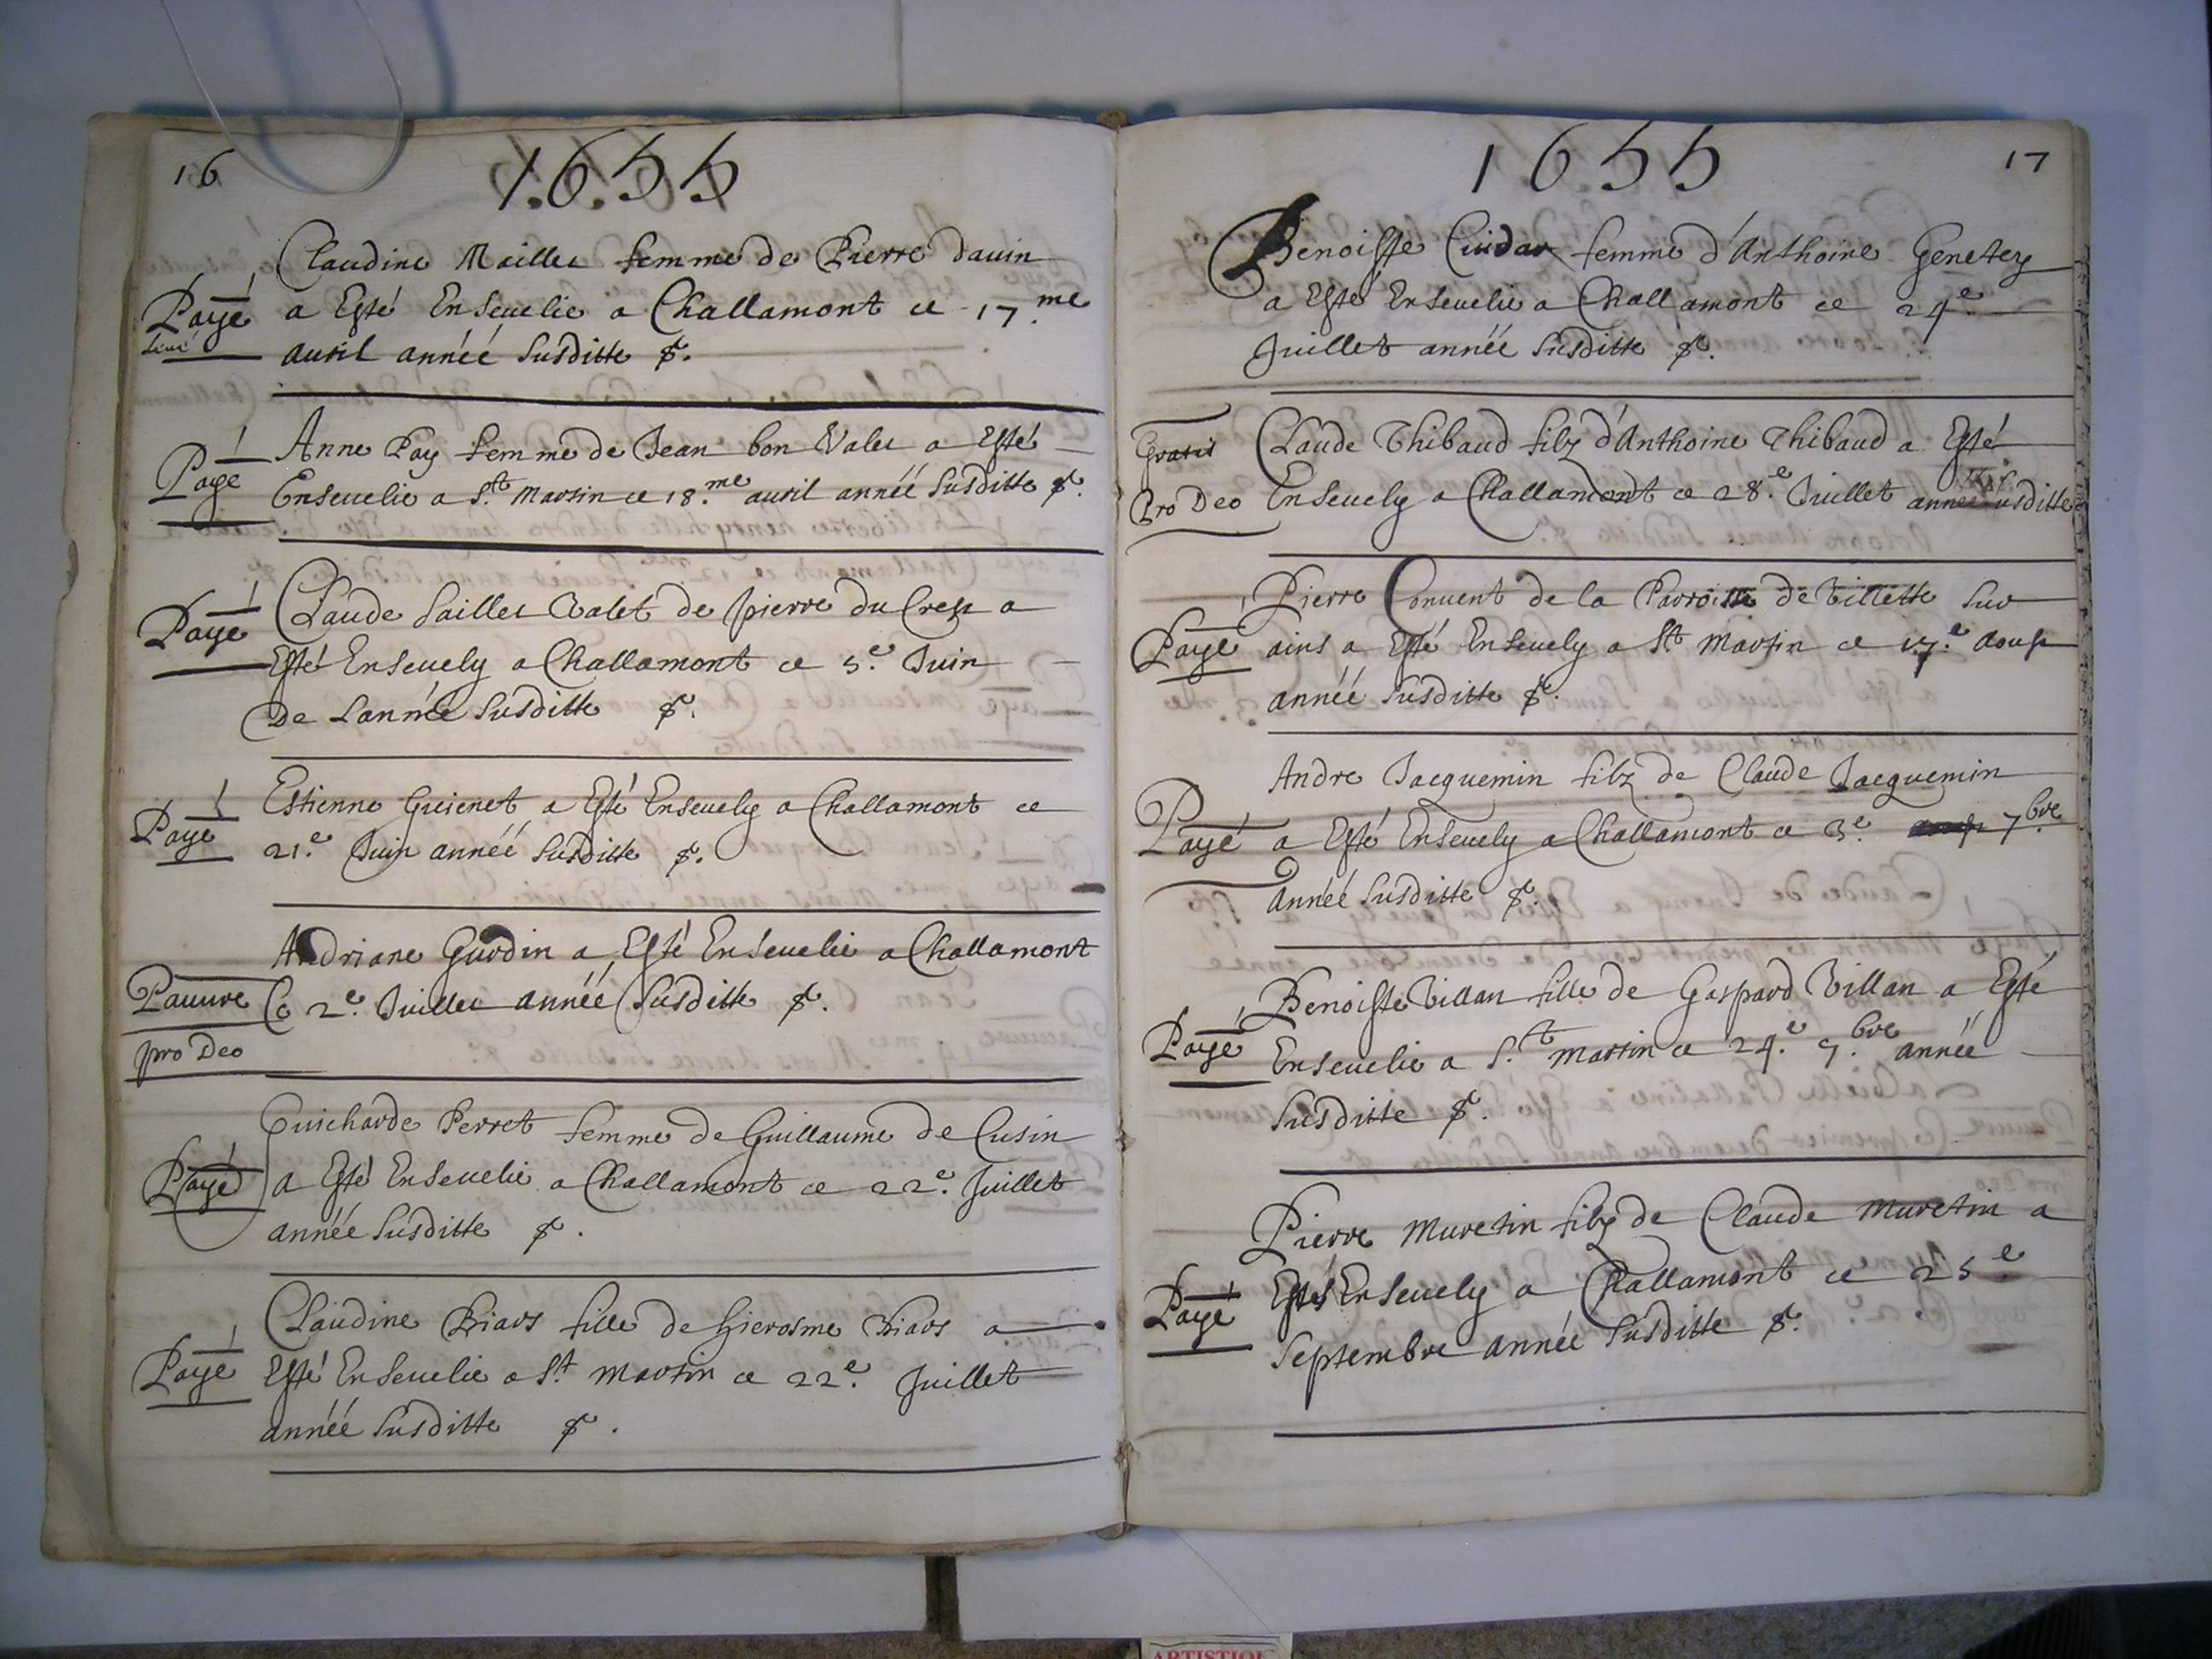 16
1.6.5.5
Claudine Maillet femme de Pierre dauin
Payé
a Esté Enseuelie a Challamont ce 17.me
auril année susditte
Anne Pay femme de Jean bon Valet a Esté
Payé
Enseuelie a St. Martin ce 18.me auril année susditte
Claude Saillet Valet de pierre du Crest a
Payé
Esté Enseuely a Challamont ce 5.e Juin
De Lannée susditte
Estienne Guienet a Esté Enseuely a Challamont ce
Payé
21.e Juin année susditte
Andriane Gurdin a Esté Enseuelie a Challamont
Pauure
Ce 2.e Juillet année susditte
pro Deo
Guicharde Perret femme de Guillaume de Cusin
Payé
a Esté Enseuelie a Challamont ce 22.e Juillet
année susditte
Claudine Biars fille de hierosme Biars a
Payé
Esté Enseuelie a St. martin ce 22.e Juillet
année susditte
1655
17
Benoiste femme d'Anthoine Genetey
a Esté Enseuelie a Challamont ce 24.e
Juillet année susditte
Gratis
Claude Thibaud filz d'Anthoine Thibaud a Esté
Pro Deo
Enseuely a Challamont ce 28.e Juillet année susditte
Pierre Conuent de la Parroisse de Villette sur
Payé
ains a Esté Enseuely a St martin ce aoust
année susditte
Andre Jacquemin filz de Claude Jacquemin
Payé
a Esté Enseuely a Challamont ce 3.e 7.bre
année susditte
Benoiste Villan fille de Gaspard Villan a Esté
Payé
Enseuelie a S.t martin ce 24.e 7.bre année
susditte
Pierre Muretin filz de Claude Muretin a
Payé
Esté Enseuely a Challamont ce 25e
Septembre année susditte